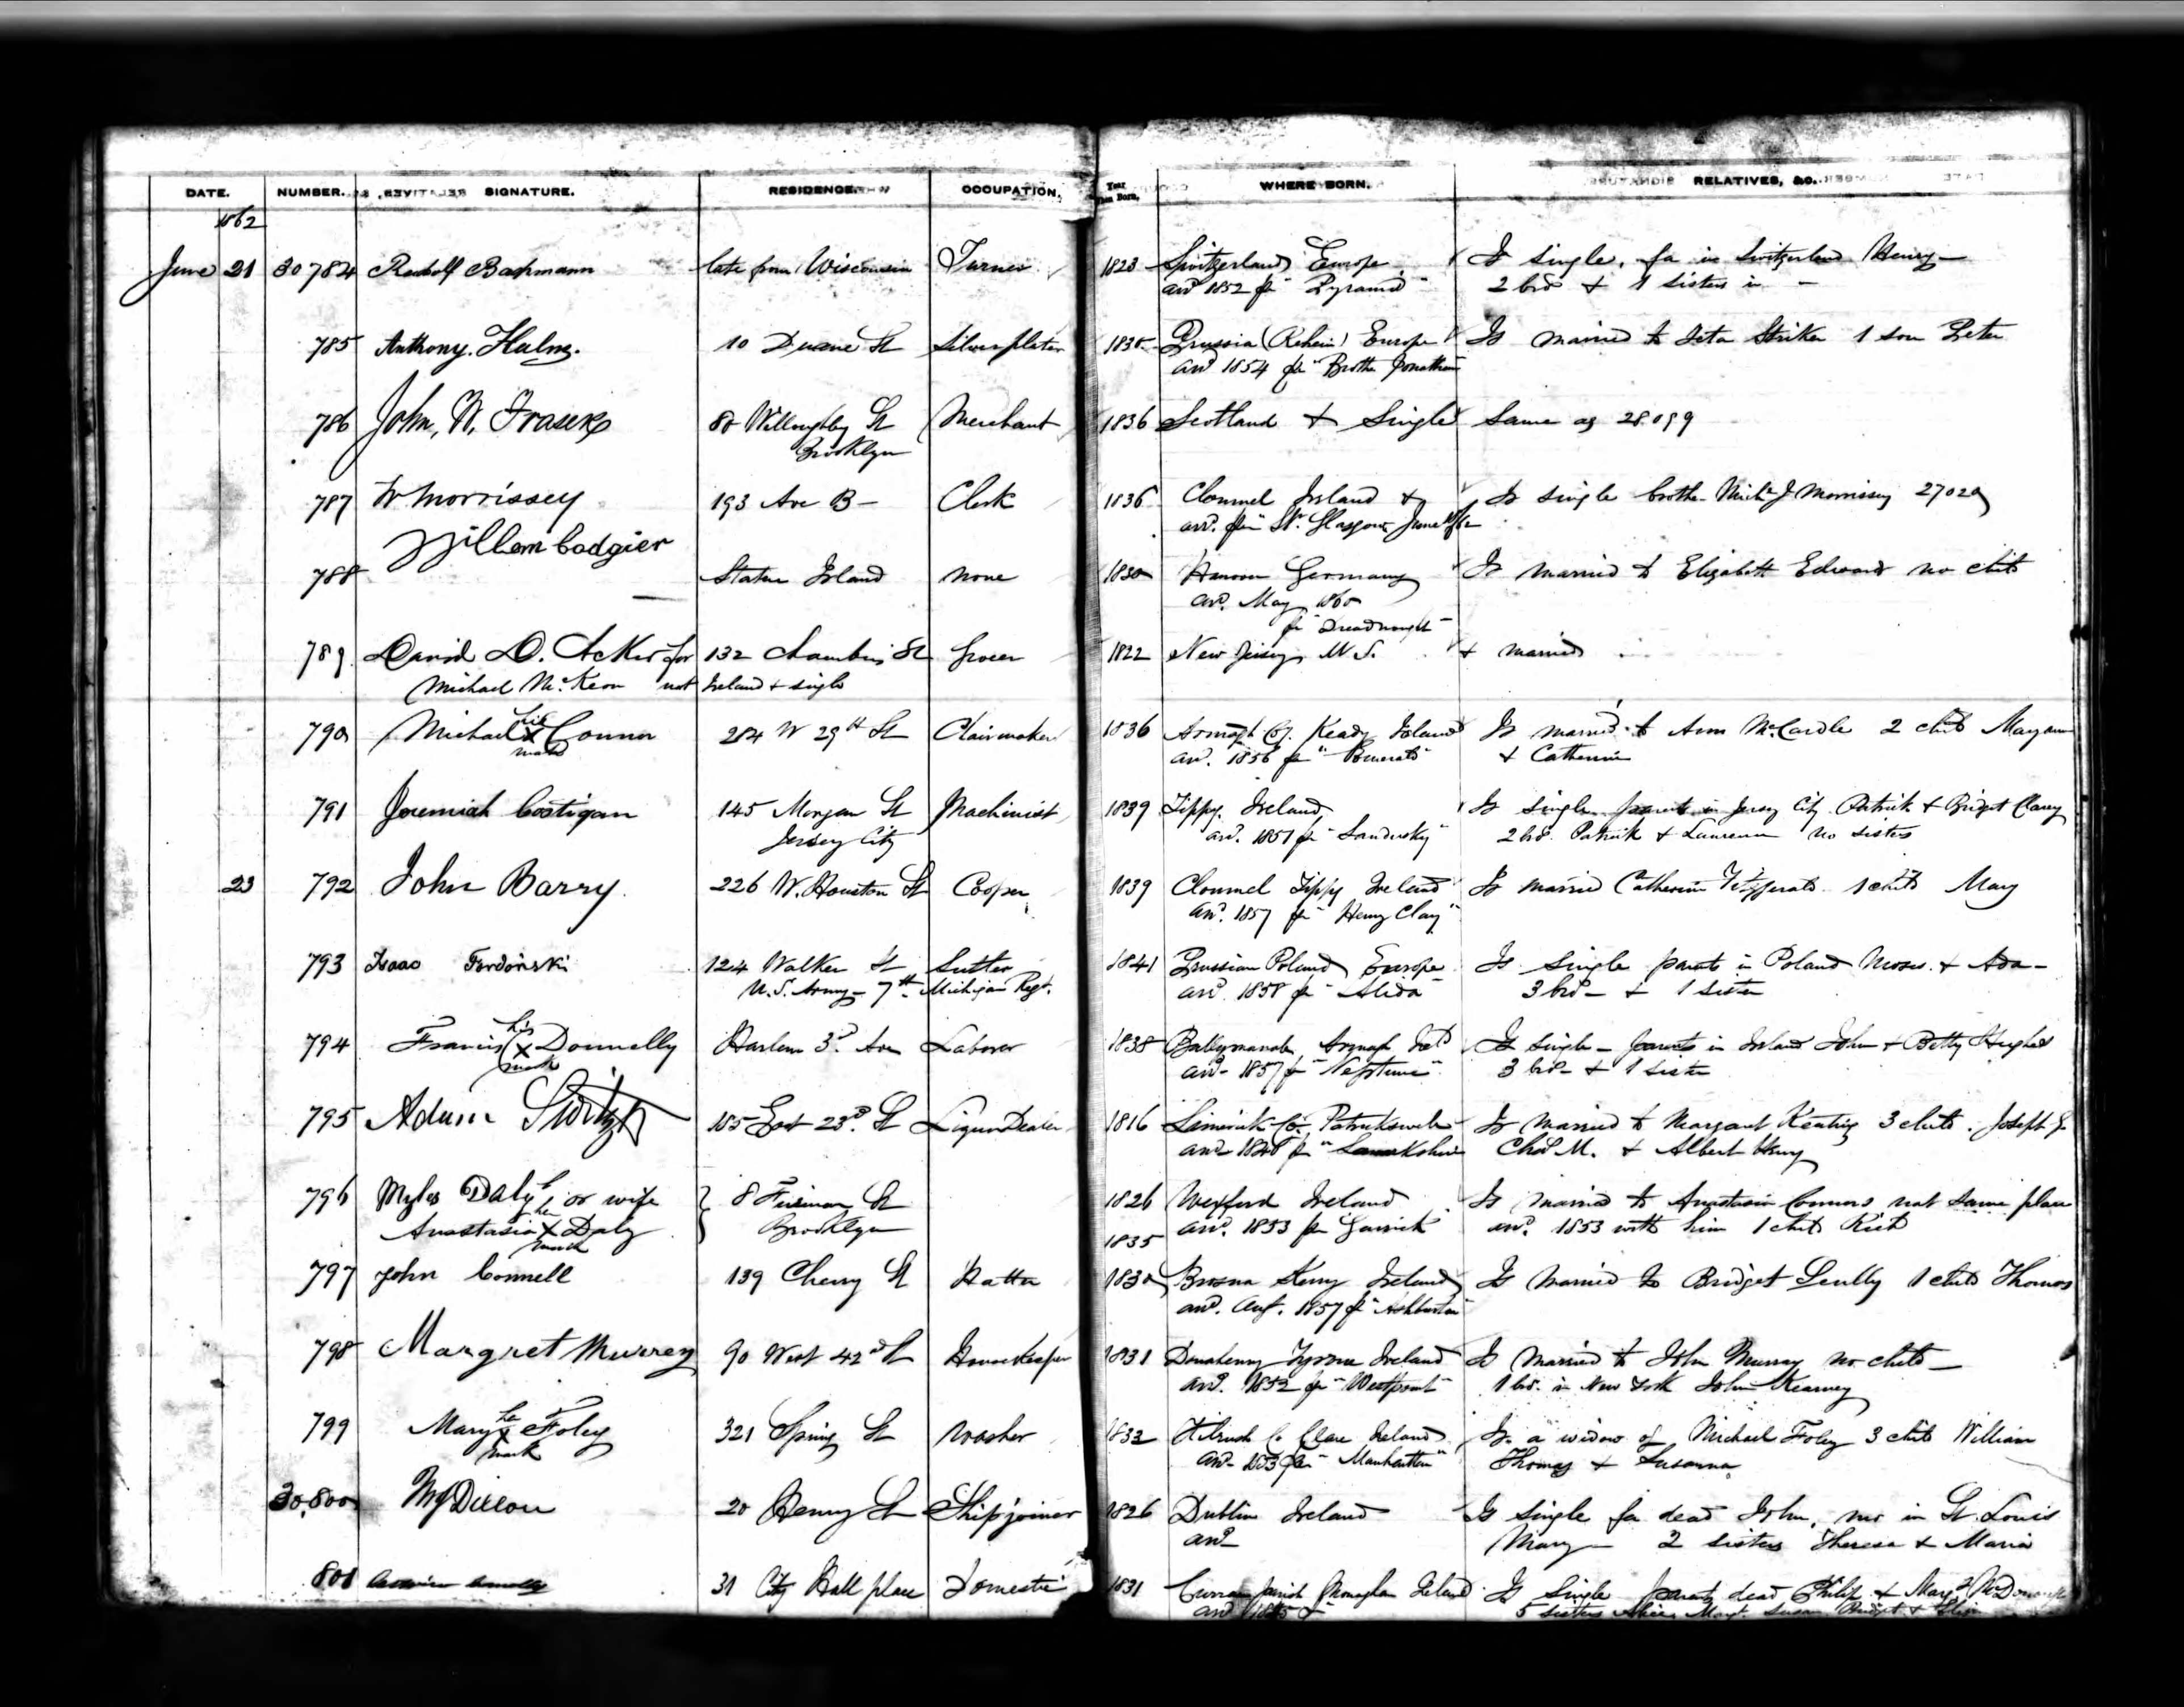 DATE. NUMBER. SIGNATURE. RESIDENCE. OCCUPATION. Year When Born. WHERE BORN. RELATIVES, &C.
1862
June 21 30784 Rudolf Bachmann late from Wisconsin Turner 1823 Switzerland Europe Is single, fa in Switzerland Henry
arrd 1852 pr "Pyramid" 2 bros + 1 sisters in
785 Anthony Halm. 10 Duane St Silverplater 1830 Prussia (Rehein) Europe Is married to Striker 1 son Peter
arrd 1854 pr "Brother Jonathan"
786 John, W, Fraser 80 Willoughby St Merchant 1836 Scotland + Single Same as 28.099
Brooklyn
787 W Morrissey 193 Ave B Clerk 1836 Clonmel Ireland + Is single brother Michl J Morrissey 27029
arr. pr Str Glasgow June
788 Willem Staten Island none 1830 Germany Is married to Elizabeth Edwards no child
arrd. May 1860
pr "Dreadnought"
789 David D. Acker for 132 Chambers St Grocer 1822 New Jersey U.S. + married
Michael McKeon not Ireland + single
790 Michael his X mark Connor 284 W 29th St Chairmaker 1836 Armagh Co. Keady Ireland Is married to Ann McCardle 2 child Maryann
arr. 1856 pr + Catherine
791 Jeremiah Costigan 145 Morgan St Machinist 1839 Tippy. Ireland Is single parents in Jersey City Patrick + Bridget Clancy
Jersey City arrd. 1851 pr "Sandusky" 2 bro. Patrick + Laurence no sisters
23 792 John Barry. 226 W. Houston St Cooper 1839 Clonmel Tippy Ireland Is married Catherine Fitzgerald 1 child Mary
arrd. 1857 pr "Henry Clay"
793 Isaac Fordonski 124 Walker St Sutler 1841 Prussian Poland Europe Is single parents in Poland Moses + Ada
U.S. Army 7th Michigan Regt. arrd 1858 pr "Alida" 3 bro + 1 sister
794 Francis his X mark Donnelly Harlem 3d Ave Laborer 1838 Armagh Ireld Is single parents in Ireland John + Betty Hughes
arrd 1857 pr "Neptune" 3 bro + 1 sister
795 Adam Switzer 185 East 23d St Liquor Dealer 1816 Limerick Co. Patrickswell Is married to Margaret Keating 3 child. Joseph J.
arrd 1848 pr "Lanarkshire Chas M. + Albert Henry
796 Myles Daly or wife 8 Fireman St 1826 Wexford Ireland Is married to Anastasia Connors nat same place
Anastasia her X mark Daly Brooklyn 1835 arrd. 1853 pr Garrick arrd. 1853 with him 1 child Richd
797 John Connell 139 Cherry St Hatter 1830 Brosna Kerry Ireland Is married to Bridget Scully 1 child Thomas
arrd. Aug. 1857 pr "Ashburton"
798 Margret Murrey 90 West 42nd St Housekeeper 1831 Donaheny Tyrone Ireland Is married to John Murray no child
arrd. 1852 pr "Westpoint" 1 bro. in New York John Kearney
799 Mary her X mark Foley 321 Spring St Washer 1832 Kilrush Co Clare Ireland Is a widow of Michael Foley 3 child William
arrd 1853 pr "Manhattan" Thomas + Susanna
30,800 Dillon 20 Henry St Shipjoiner 1826 Dublin Ireland Is single fa dead John, mo in St. Louis
arrd Mary 2 sisters Theresa + Maria
801 31 City Hall place Domestic 1831 parish Monaghan Ireland Is Single parents dead Philip + Margt
arrd 5 sisters Alice Margt. Susan Bridget +